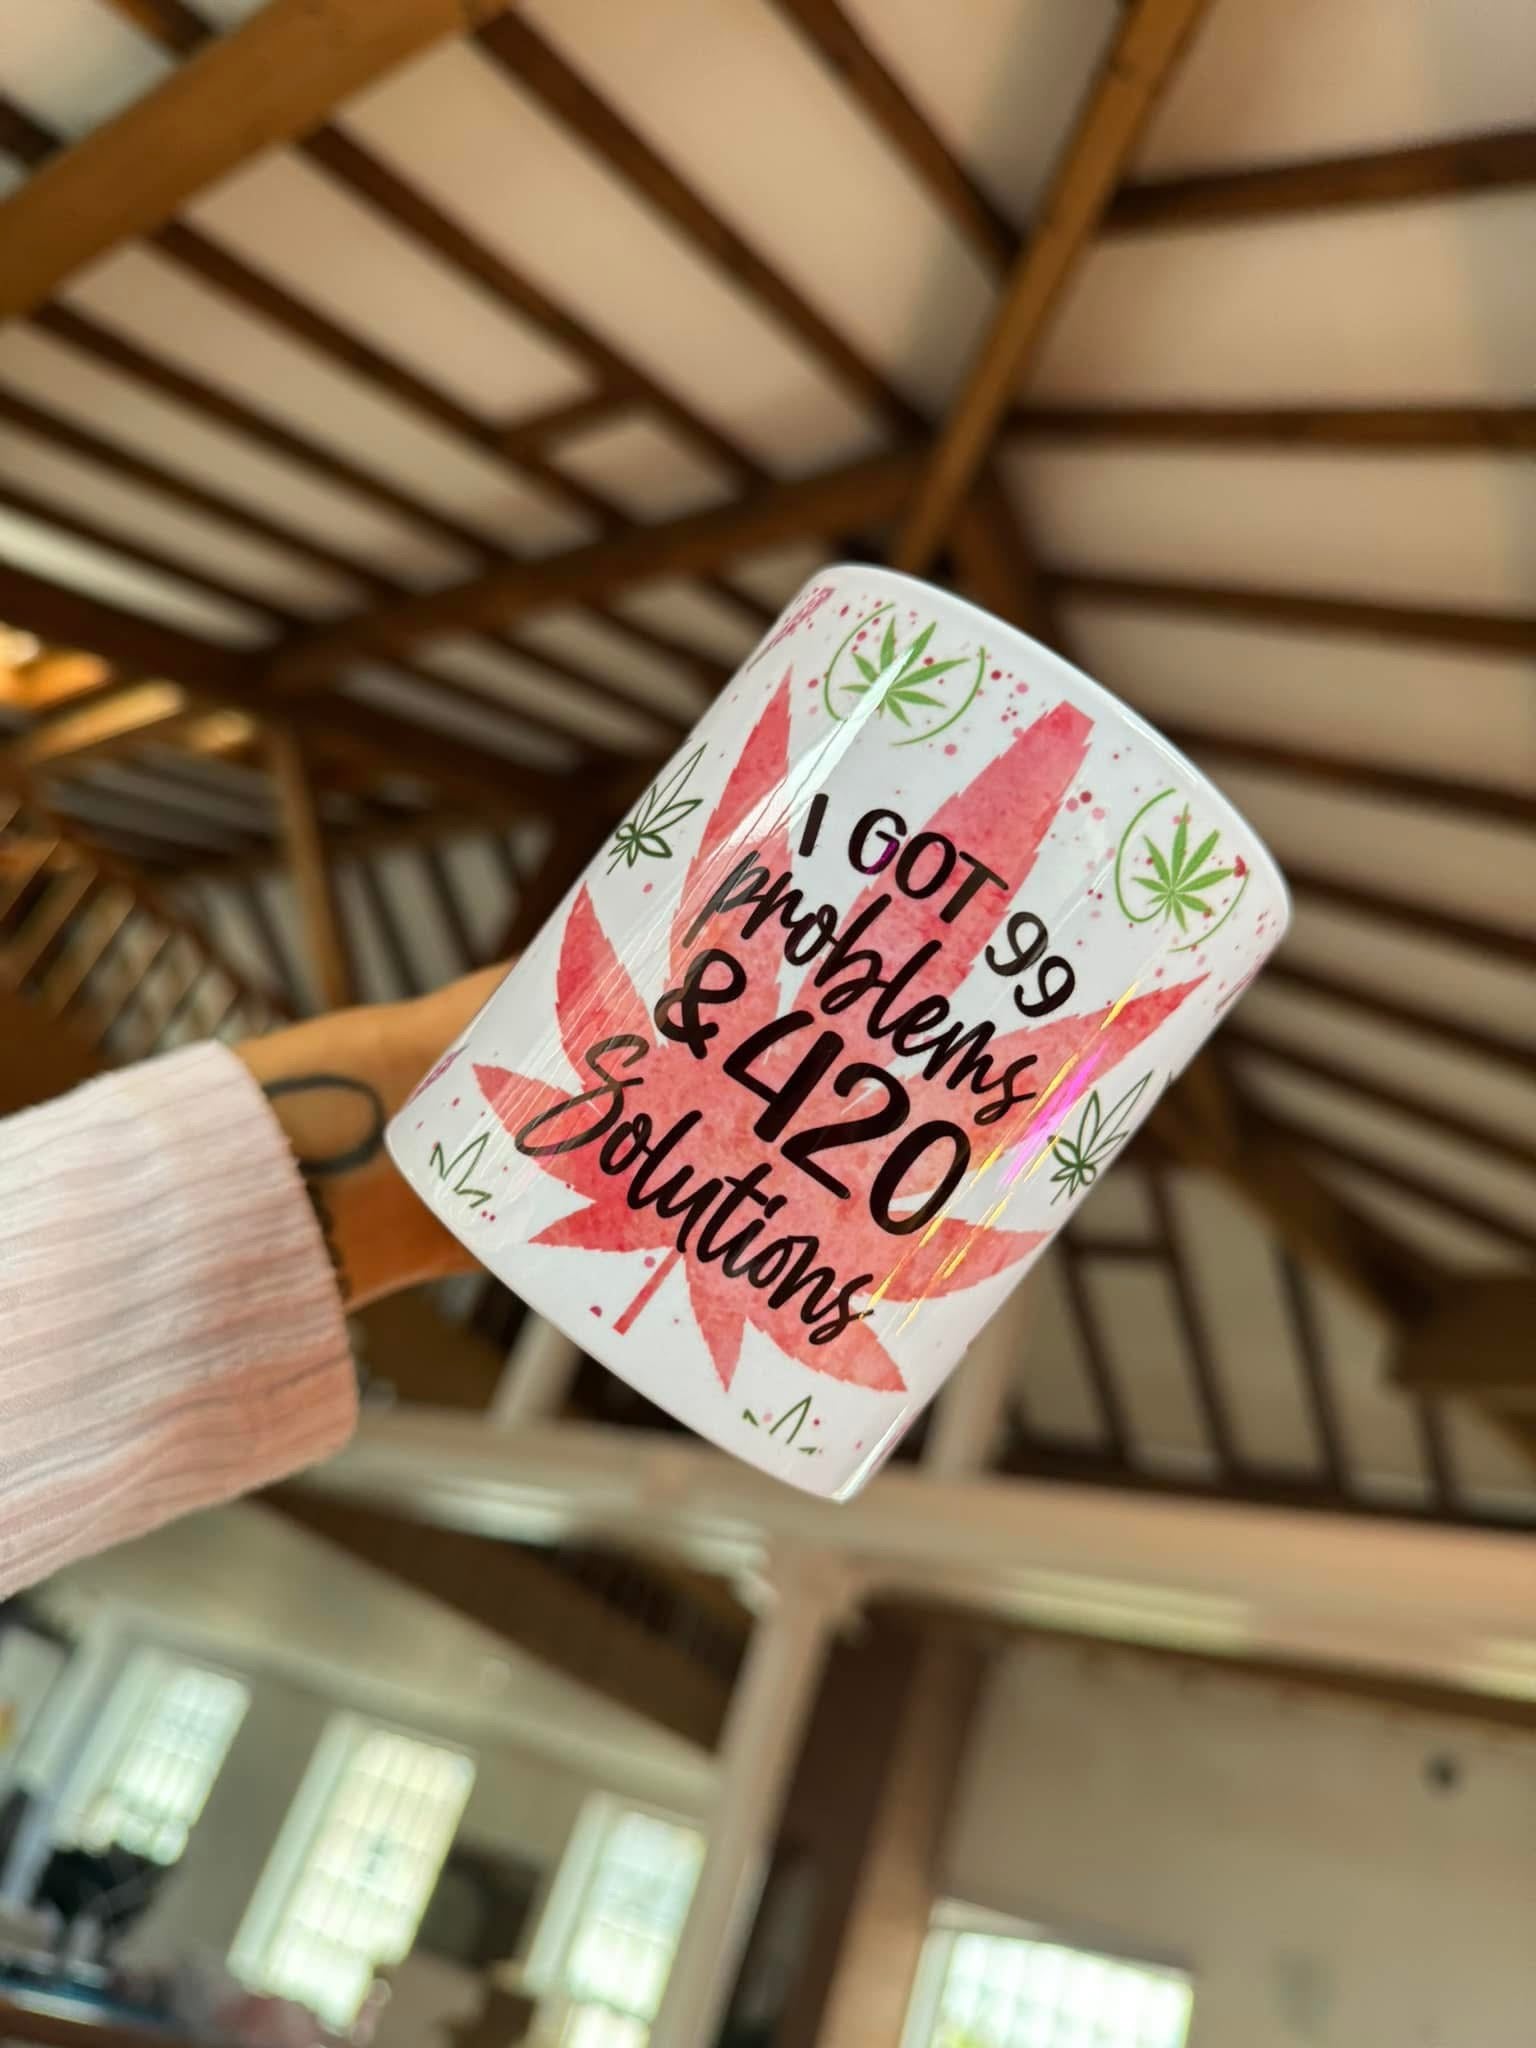 I GOT 99
problems
& 420
Solutions